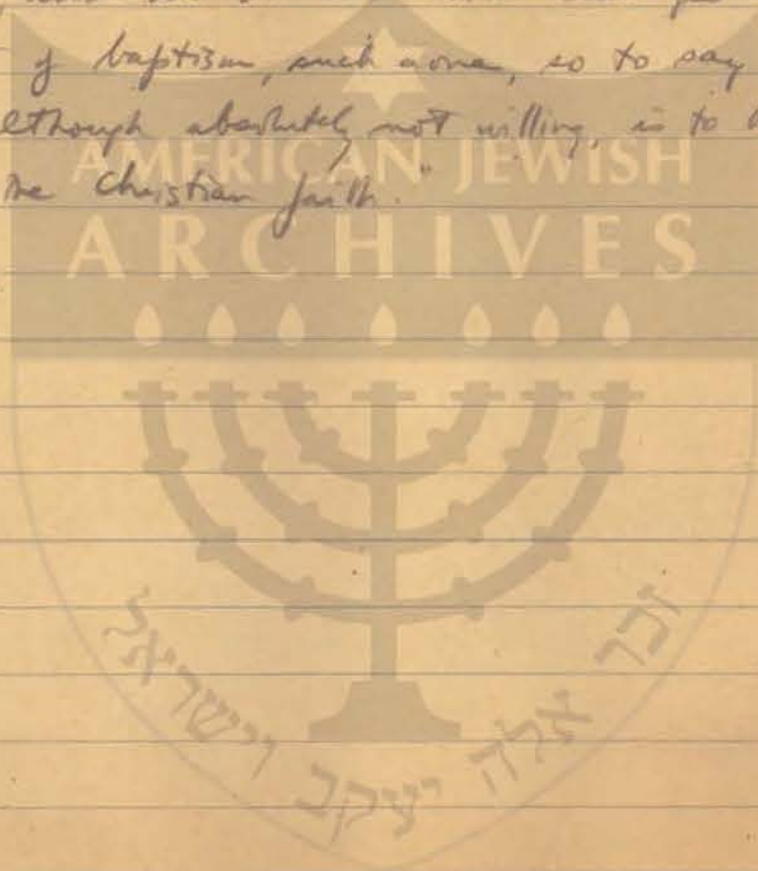 of baptism, such a one, so to say
although absolutely not willing, is to
the Christian faith."
AMERICAN JEWISH
ARCHIVES
זכר אלה יעקב וישראל